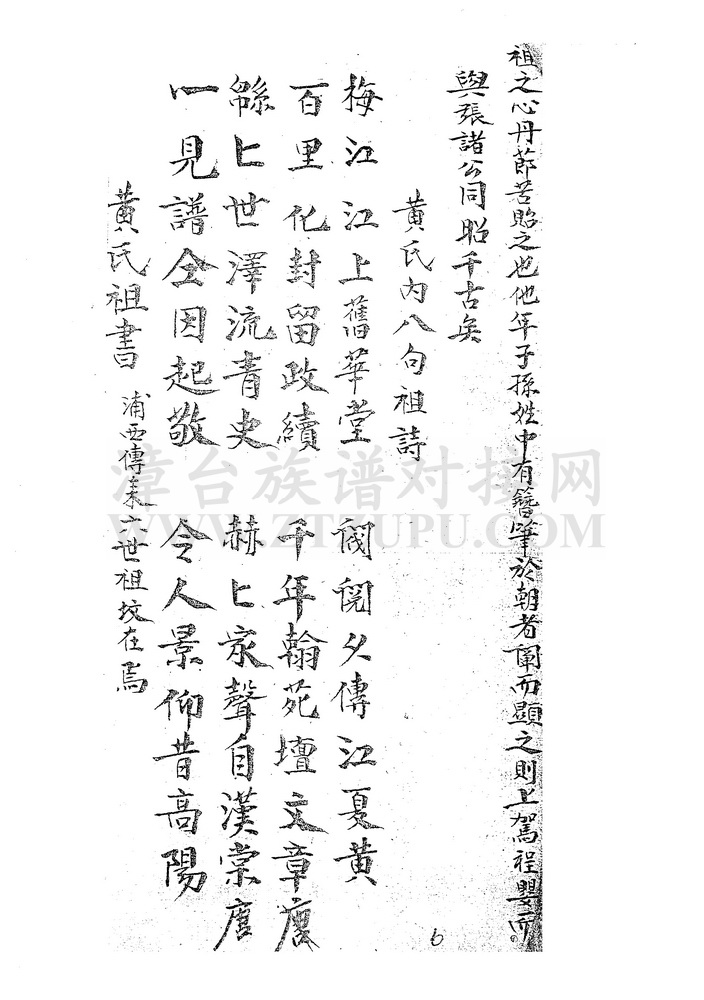 祖之心丹節苦貽之也他年子孫姓中有簪筆於朝者闡而顯之則上駕程嬰而
與張諸公同昭千古矣
黃氏内八句祖詩
梅江江上舊華堂 閥閱久傳江夏黃
百里化封留政績 千年翰苑壇文章
緜匕世澤流青史 赫匕家聲自漢棠
一見譜全因起敬 令人景仰昔高陽
黃氏祖書 浦西傳來六世祖墳在焉
漳台族谱对接网
WWW.ZTZUPU.COM
6